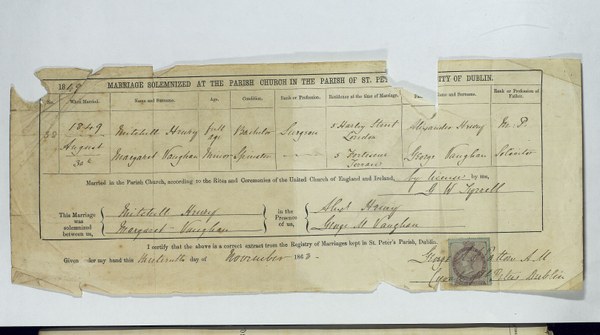 1849 MARRIAGE SOLEMNIZED AT THE PARISH CHURCH IN THE PARISH OF ST. PET ITY OF DUBLIN.
No. When Married. Name and Surname. Age. Condition. Rank or Profession. Residence at the time of Marriage. Fa me and Surname. Rank or Profession of Father.
33 1849 Mitchell Henry full age Bachelor Surgeon 5 Harley Street London Alexander Henry M. P.
August Margaret Vaughan Minor Spinster — 5 Fortescue Terrace George Vaughan Solicitor
Married in the Parish Church, according to the Rites and Ceremonies of the United Church of England and Ireland, by licence by me,
Tyrrell
This Marriage was solemnized between us, Mitchell Henry Margaret Vaughan in the Presence of us, Alexr Henry George M Vaughan
I certify that the above is a correct extract from the Registry of Marriages kept in St. Peter's Parish, Dublin.
Given der my hand this day of November 186
George A M
Dublin